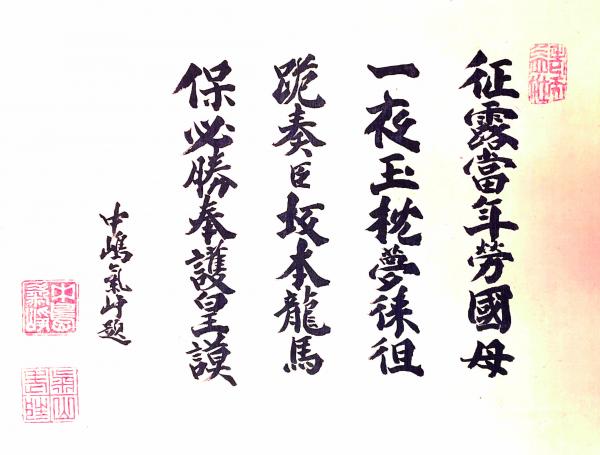 征露當年勞國母
一夜玉枕夢徠徂
跪奏臣坂本龍馬
保必勝奉護皇謨
中嶋氣山题